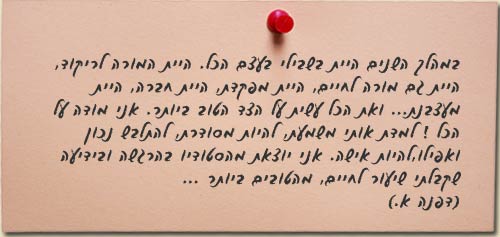 במהלך השנים היית בשבילי בעצם הכל. היית המורה לריקוד,
היית גם מורה לחיים, היית מפקדת, היית חברה, היית
מעצבנת... ואת הכל עשית על הצד הטוב ביותר. אני מודה על
הכל ! למדת אותי משמעת, להיות מסודרת, להתלבש נכון
ואפילו,להיות אישה. אני יוצאת מהסטודיו בהרגשה ובידיעה
שקבלתי שיעור לחיים, מהטובים ביותר ...
(דפנה א.)